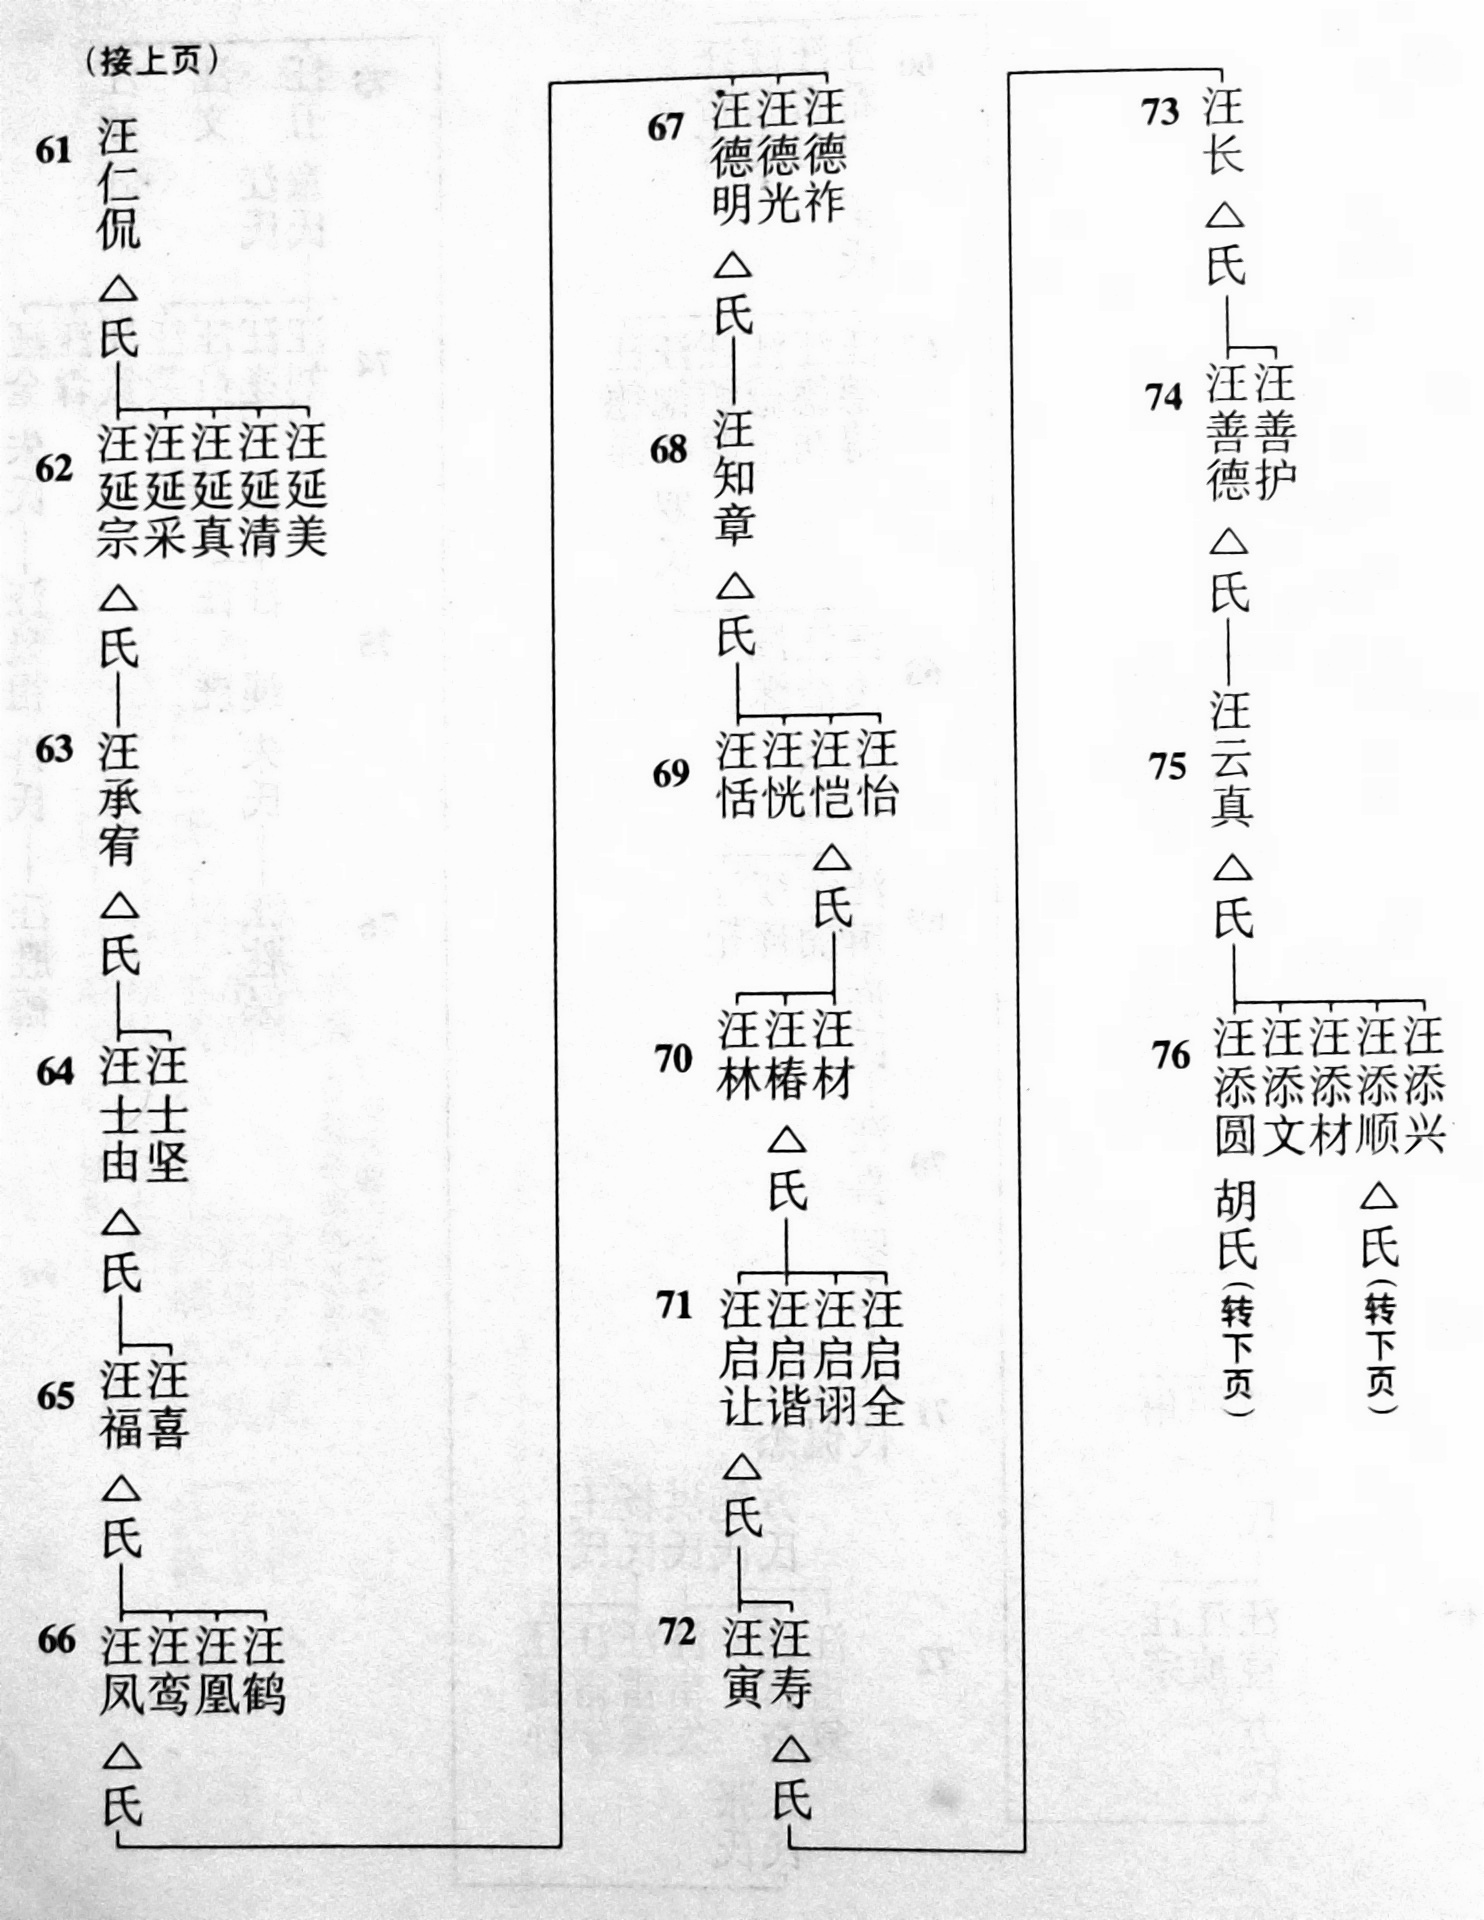 （接上页）
61
汪仁侃
△氏
62
汪延宗
汪延采
汪延真
汪延清
汪延美
△氏
63
汪承宥
△氏
64
汪士由
汪士坚
△氏
65
汪福
汪喜
△氏
66
汪凤
汪鸾
汪凰
汪鹤
△氏
67
汪德明
汪德光
汪德祚
△氏
68
汪知章
△氏
69
汪恬
汪恍
汪恺
汪怡
△氏
70
汪林
汪椿
汪材
△氏
71
汪启让
汪启谐
汪启诩
汪启全
△氏
72
汪寅
汪寿
△氏
73
汪长
△氏
74
汪善德
汪善护
△氏
75
汪云真
△氏
76
汪添圆
汪添文
汪添材
汪添顺
汪添兴
胡氏（转下页）
△氏（转下页）